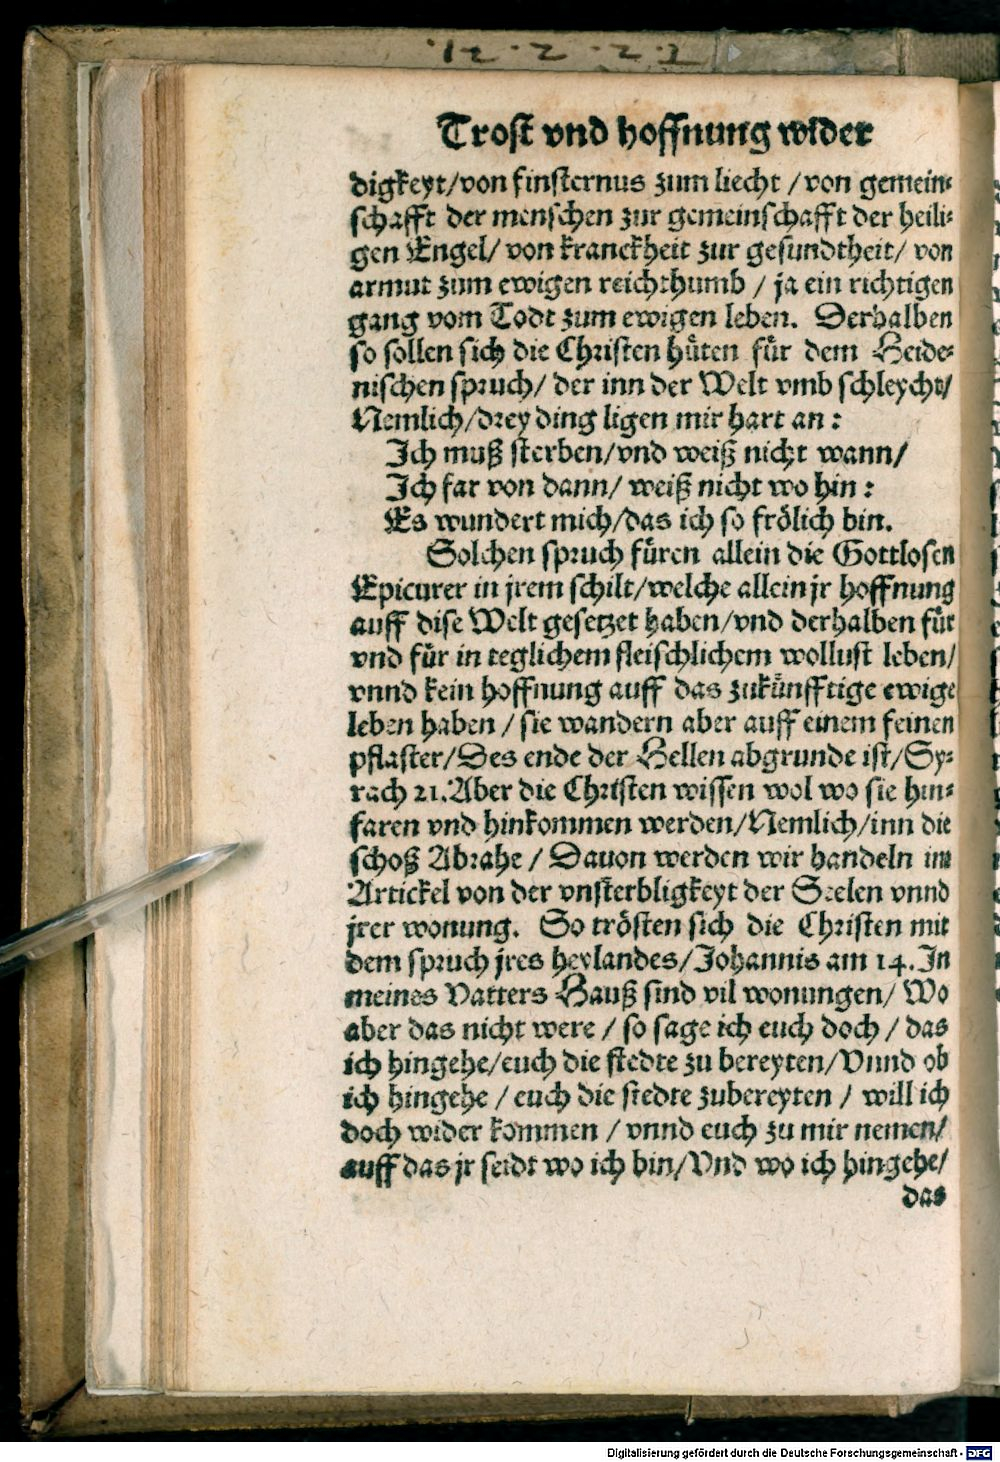 Trost vnd hoffnung wider
digkeyt/von finsternus zum liecht /von gemein⸗
schafft der menschen zur gemeinschafft der heili⸗
gen Engel/ von kranckheit zur gesundtheit/ von
armut zum ewigen reichthumb / ja ein richtigen
gang vom Todt zum ewigen leben. Derhalben
so sollen sich die Christen hüten für dem Heide⸗
nischen spruch/ der inn der Welt vmb schleycht/
Nemlich/drey ding ligen mir hart an:
Ich muß sterben/vnd weiß nicht wann/
Ich far von dann/ weiß nicht wo hin:
Es wundert mich/das ich so frölich bin.
Solchen spruch füren allein die Gottlosen
Epicurer in jrem schilt/welche allein jr hoffnung
auff dise Welt gesetzet haben/vnd derhalben für
vnd für in teglichem fleischlichem wollust leben/
vnnd kein hoffnung auff das zukünfftige ewige
leben haben / sie wandern aber auff einem feinen
pflaster/Des ende der Hellen abgrunde ist/Sy⸗
rach 21. Aber die Christen wissen wol wo sie hin⸗
faren vnd hinkommen werden/Nemlich/inn die
schoß Abrahe / Dauon werden wir handeln im
Artickel von der vnsterbligkeyt der Seelen vnnd
jrer wonung. So trösten sich die Christen mit
dem spruch jres heylandes/Johannis am 14. In
meines Vatters Hauß sind vil wonungen/ Wo
aber das nicht were / so sage ich euch doch / das
ich hingehe/euch die stedte zu bereyten/Vnnd ob
ich hingehe / euch die stedte zubereyten / will ich
doch wider kommen / vnnd euch zu mir nemen/
auff das jr seidt wo ich bin/Vnd wo ich hingehe/
das
Digitalisierung gefördert durch die Deutsche Forschungsgemeinschaft - DFG